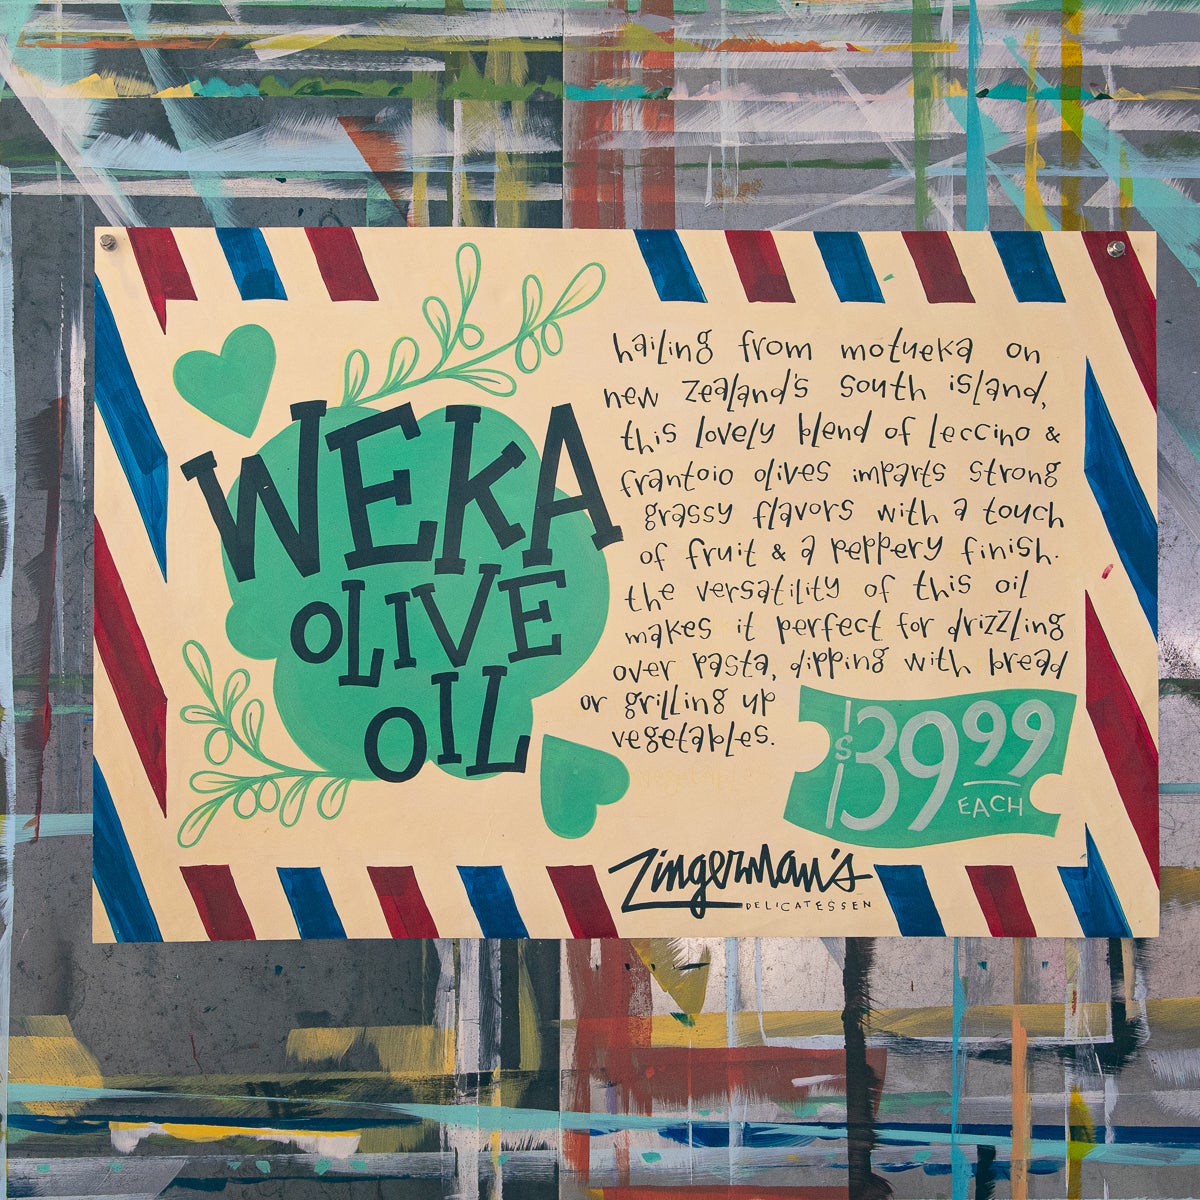 WEKA
OLIVE
OIL
hailing from motueka on
new zealand's south island,
this lovely blend of leccino &
frantoio olives imparts strong
grassy flavors with a touch
of fruit & a peppery finish.
the versatility of this oil
makes it perfect for drizzling
over pasta, dipping with bread
or grilling up
vegetables.
$39.99
EACH
Zingerman's
DELICATESSEN